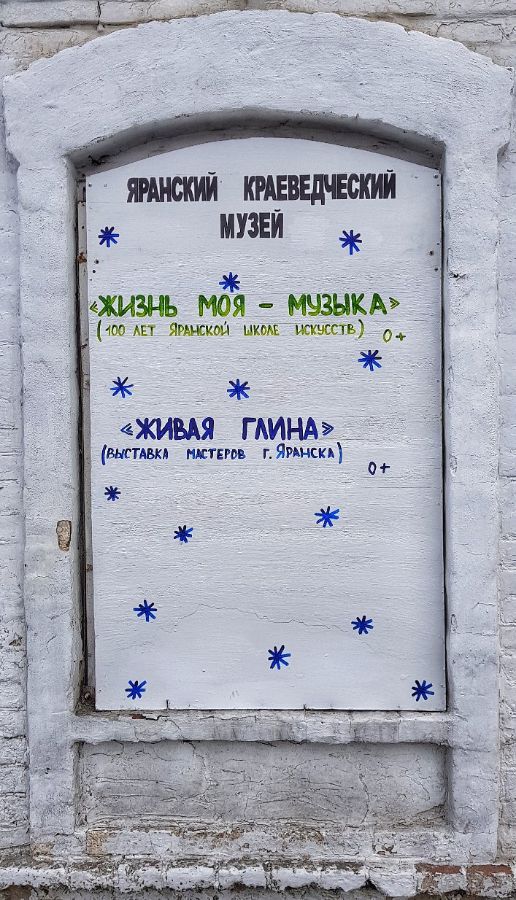 ЯРАНСКИЙ КРАЕВЕДЧЕСКИЙ
МУЗЕЙ
«ЖИЗНЬ МОЯ - МУЗЫКА»
(100 ЛЕТ ЯРАНСКОЙ ШКОЛЕ ИСКУССТВ) 0+
«ЖИВАЯ ГЛИНА»
(ВЫСТАВКА МАСТЕРОВ Г. ЯРАНСКА) 0+